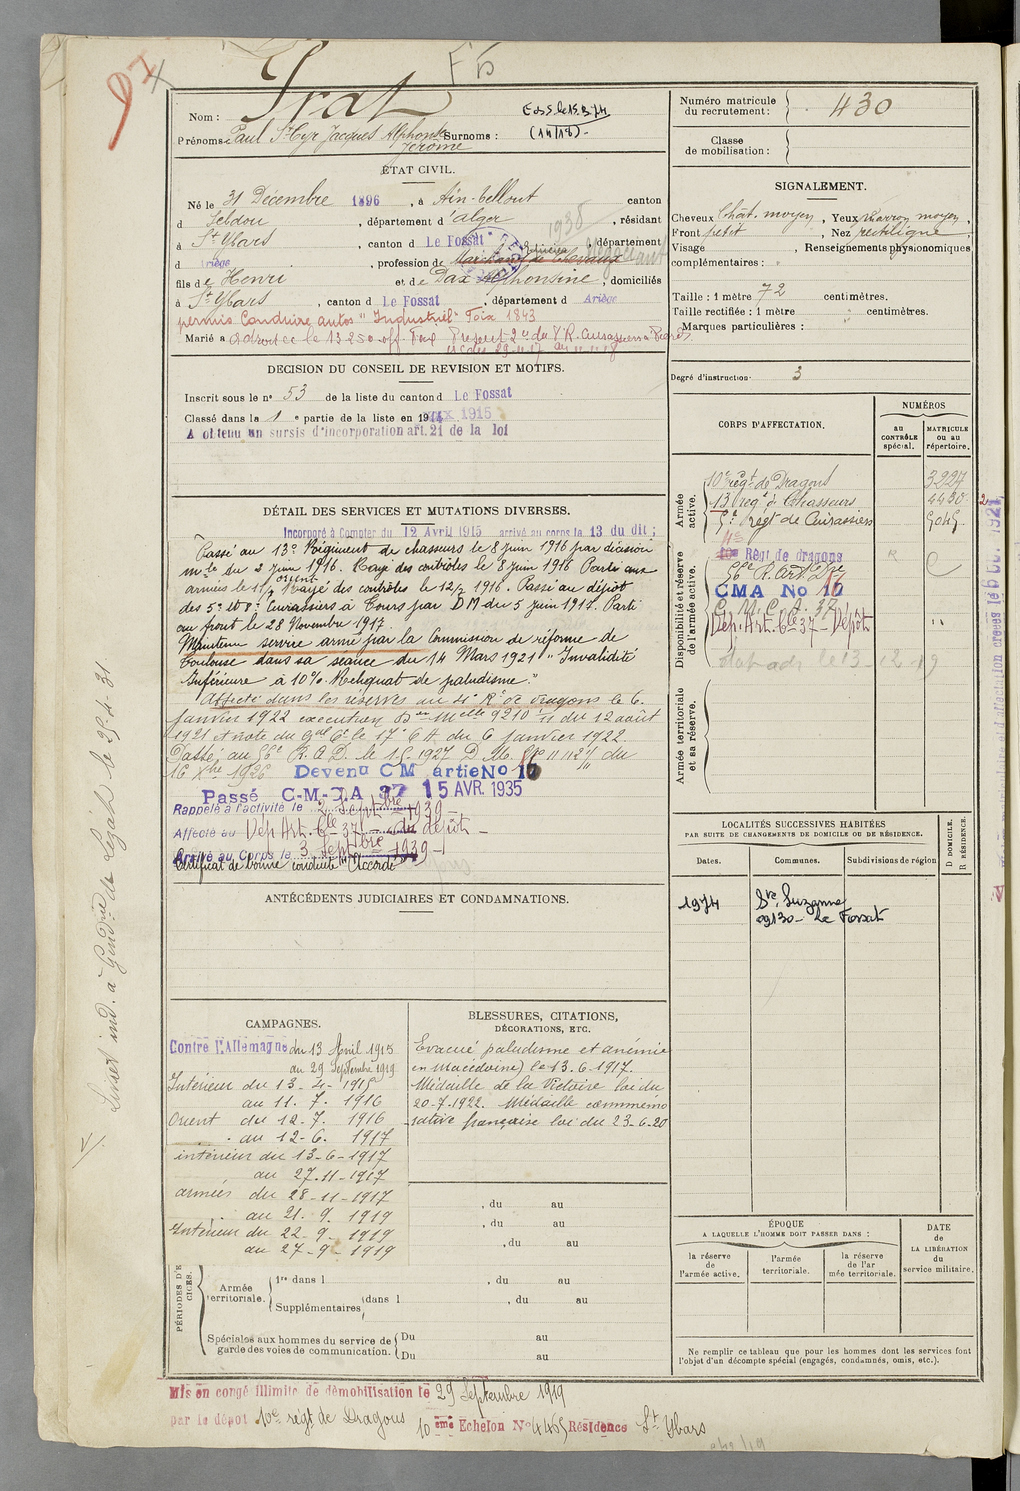 97
F b
Nom : Prat
E du S. le 15.3.74
(14/18) -
Prénoms : Paul St Cyr Jacques Alphonse Surnoms :
Jérôme
ÉTAT CIVIL.
Né le 31 Décembre 1896, à Aïn-tellout canton
d Sebdou, département d'alger, résidant
1938
à St Ybars, canton d Le Fossat, département
d Ariège, profession de Marchand de chevaux
Négociant
fils de Henri et de Dax Alphonsine, domiciliés
à St Ybars, canton d Le Fossat, département d Ariège
permis Conduire autos "Industriel" Foix 1843
Marié a
DECISION DU CONSEIL DE REVISION ET MOTIFS.
Inscrit sous le n° 53 de la liste du canton d Le Fossat
Classé dans la 1e partie de la liste en 1915
A obtenu un sursis d'incorporation art. 21 de la loi
DÉTAIL DES SERVICES ET MUTATIONS DIVERSES.
Incorporé à Compter du 12 Avril 1915 arrivé au corps le 13 du dit ;
Passé au 13e Régiment de chasseurs le 8 juin 1916 par décision
mlle du 2 juin 1916. Rayé des contrôles le 8 juin 1916 Parti aux
armées le 11/7 orient Rayé des contrôles le 12/7 1916. Passé au dépôt
des 5e et 8e Cuirassiers à Tours par DM du 5 juin 1917. Parti
au front le 28 Novembre 1917.
Maintenu service armé par la Commission de réforme de
Toulouse dans sa séance du 14 Mars 1921 "Invalidité
Inférieure à 10%. Reliquat de paludisme."
Affecté dans les réserves au 4e Rt de dragons le 6
janvier 1922 exécution Don Mlle 9210 /11 du 12 août
1921 et note du Gal Ct le 17e CA du 6 janvier 1922.
Passé au 56e R.A.D. le 1-5-1927 D.M. du
16 Xbre 1926 Devenu CM artie No 16
Passé C-M-A 37 15 AVR. 1935
Rappelé à l'activité le 2 Septbre 1939 -
Affecté au Dép. Art. Cle 37 - du dépôt -
Arrivé au Corps le 3 Septbre 1939 -
Certificat de bonne conduite "Accordé"
ANTÉCÉDENTS JUDICIAIRES ET CONDAMNATIONS.
CAMPAGNES.
Contre l'Allemagne du 13 Avril 1915
au 29 Septembre 1919
Intérieur du 13-4-1915
au 11. 7. 1916
Orient du 12-7. 1916
au 12-6. 1917
intérieur du 13-6-1917
au 27-11-1917
armées du 28-11-1917
au 21. 9. 1919
Intérieur du 22-9-1919
au 27-9-1919
BLESSURES, CITATIONS,
DÉCORATIONS, ETC.
Evacué paludisme et anémie
en Macédoine) le 13.6.1917.
Médaille de la Victoire loi du
20-7-1922. Médaille commémo
rative française loi du 23-6-20
, du au
, du au
, du au
PÉRIODES D'EXERCICES.
Armée territoriale.
1re dans l , du au
Supplémentaires dans l , du au
Spéciales aux hommes du service de garde des voies de communication.
Du au
Du au
Numéro matricule du recrutement : 430
Classe de mobilisation :
SIGNALEMENT.
Cheveux Chât. moyen, Yeux marron moyen,
Front petit, Nez rectiligne,
Visage , Renseignements physionomiques
complémentaires :
Taille : 1 mètre 72 centimètres.
Taille rectifiée : 1 mètre centimètres.
Marques particulières :
Degré d'instruction 3
CORPS D'AFFECTATION.
NUMÉROS
au CONTRÔLE spécial.
MATRICULE ou au répertoire.
Armée active.
10e régt de Dragons 3227
13 régt de Chasseurs 4430
5e régt de Cuirassiers 5045
Disponibilité et réserve de l'armée active.
Régt de dragons
56e R. Artie Dre
CMA No 16
C. M. C. A. 37
Dép. Art. Cle 37 - Dépôt "
Armée territoriale et sa réserve.
LOCALITÉS SUCCESSIVES HABITÉES
PAR SUITE DE CHANGEMENTS DE DOMICILE OU DE RÉSIDENCE.
Dates.
Communes.
Subdivisions de région
D DOMICILE. R RÉSIDENCE.
1974 Ste Suzanne
09130 - Le Fossat
ÉPOQUE
A LAQUELLE L'HOMME DOIT PASSER DANS :
la réserve de l'armée active.
l'armée territoriale.
la réserve de l'armée territoriale.
DATE de LA LIBÉRATION du service militaire.
Ne remplir ce tableau que pour les hommes dont les services font
l'objet d'un décompte spécial (engagés, condamnés, omis, etc.).
Mis en congé illimité de démobilisation le 29 Septembre 1919
par le dépôt 10e régt de Dragons 10ème Echelon N° 4465 Résidence St Ybars